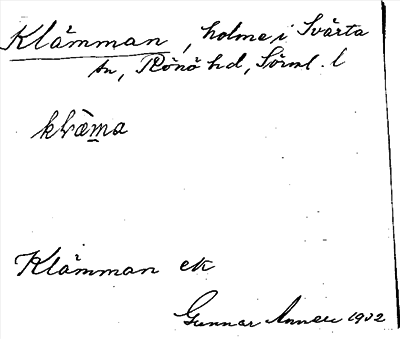 Klämman, holme i Svärta
sn, Rönö hd, Sörml. l
klàm̲a
Klämman ek
Gunnar Annell 1932